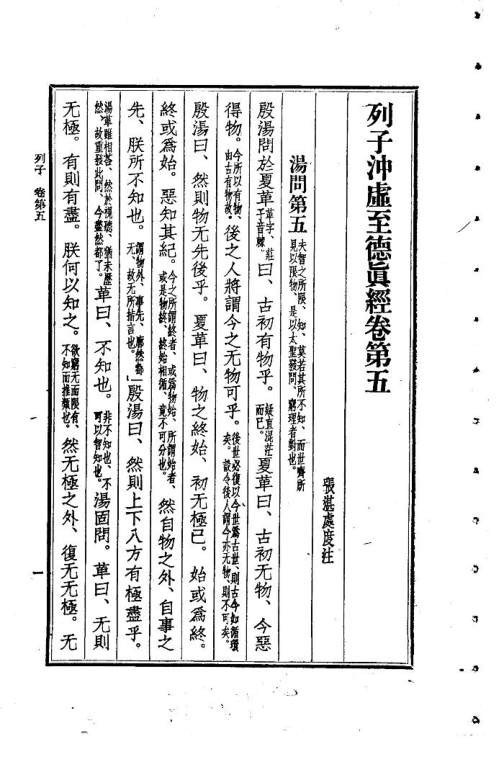 列子沖虛至德眞經卷第五
張湛處度注
湯問第五 夫智之所限、知、莫若其所不知、而世齊所見以限物、是以大聖發問、窮理者對也。
殷湯問於夏革革字、莊子音棘。曰、古初有物乎。疑直混茫而已。夏革曰、古初无物、今惡
得物。今所以有物、由古有物故。後之人將謂今之无物可乎。後世必復以今世爲古世、則古今如循環矣。設令後人謂今亦无物、則不可矣。
殷湯曰、然則物无先後乎。夏革曰、物之終始、初無極已。始或爲終。
終或爲始。惡知其紀。今之所謂終者、或爲物始、所謂始者、或是物終、終始相循、竟不可分也。然自物之外、自事之
先、朕所不知也。謂物外、事先、廓然都无、故无所措言也。」殷湯曰、然則上下八方有極盡乎。
湯革雖相答、然於視聽、猶未歷然、故重發此問、今盡然都了。革曰、不知也。非不知也、不可以智知也。湯固問。革曰、无則
无極。有則有盡。朕何以知之。欲窮无而限有、不知而推類也。然无極之外、復无无極。无
列子 卷第五
一